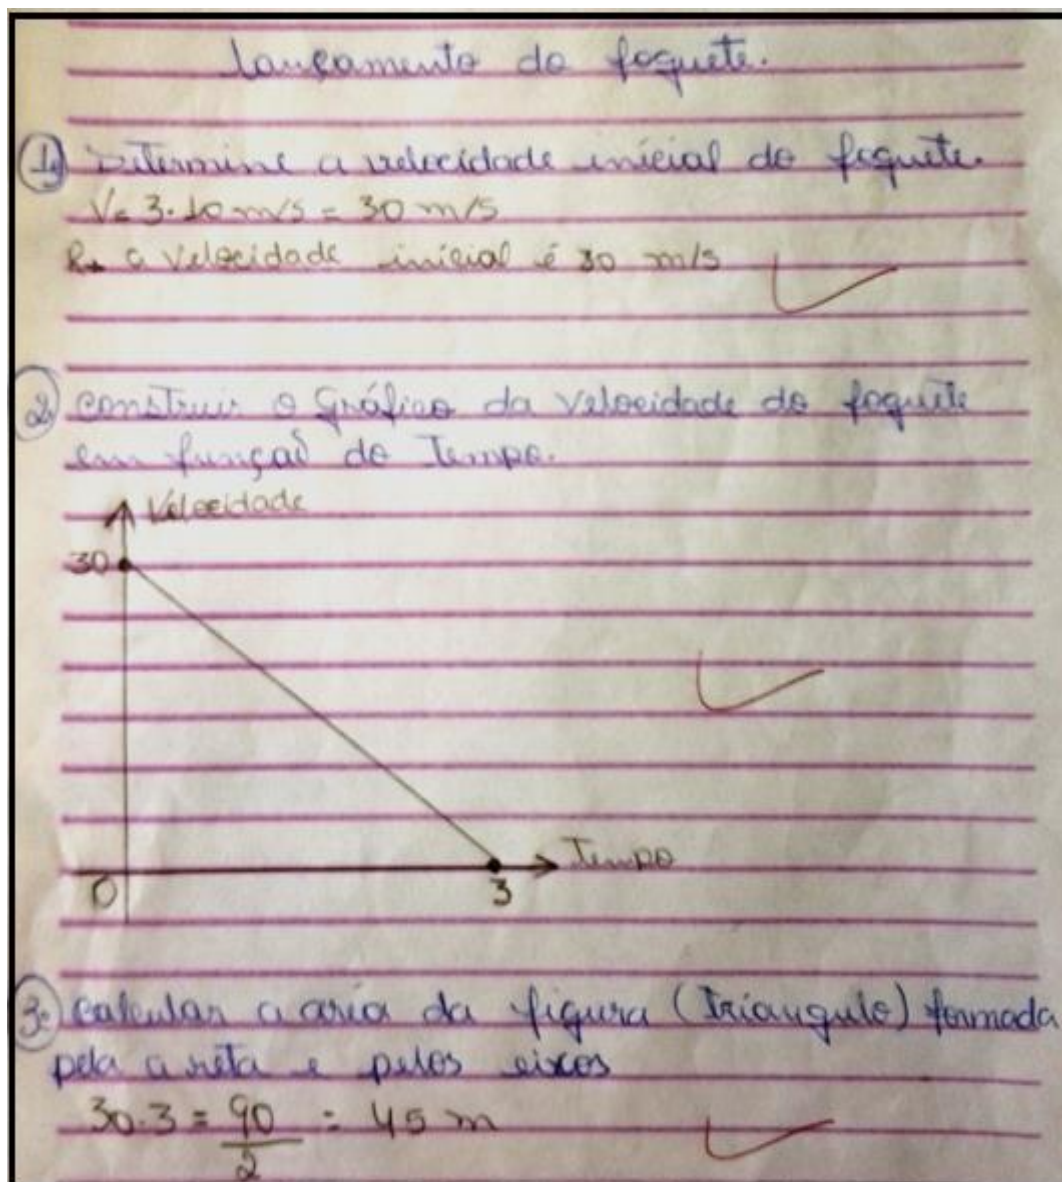 Lançamento do foguete.
1) Determine a velocidade inicial do foguete.
V= 3.10 m/s = 30 m/s
R. a velocidade inicial é 30 m/s
2) construir o gráfico da velocidade do foguete
em função do Tempo.
Velocidade
30
0
3
Tempo
3) calcular a aria da figura (Triangulo) formada
pela a reta e pelos eixos
30.3 = 90/2 = 45 m